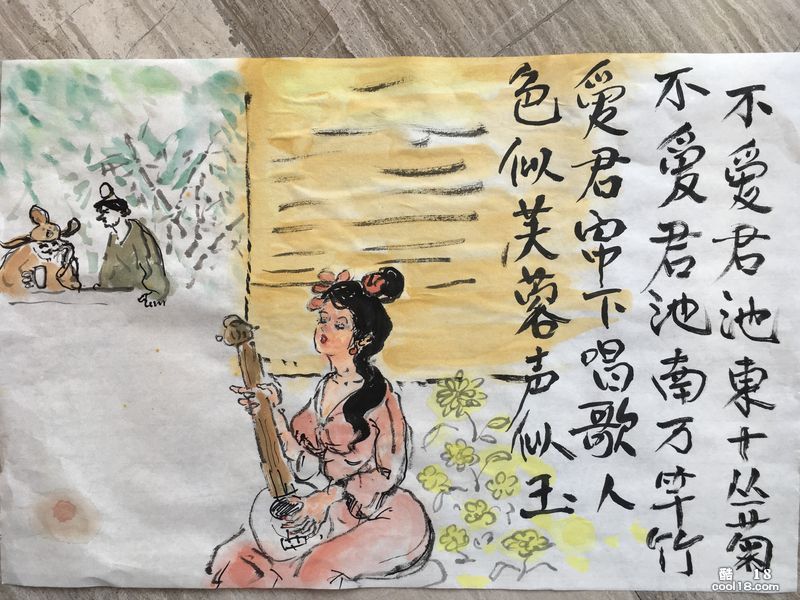 不愛君池東十丛菊
不愛君池南万竿竹
愛君帘下唱歌人
色似芙蓉声似玉
酷 18
cool18.com